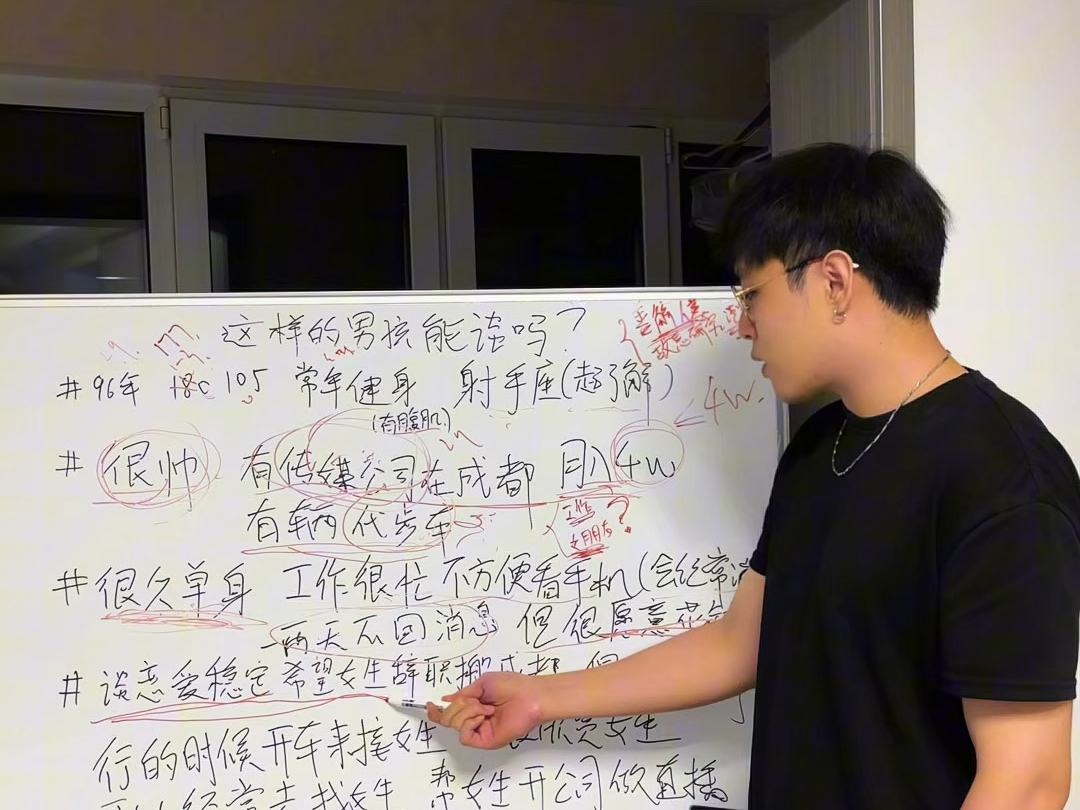 这样的男孩能谈吗?
# 96年 180 105 常年健身 射手座(超了解)
(有腹肌)
# 很帅 有传媒公司在成都 月入4w
4w.
有车两 代步车
工作
女朋友 ?
# 很久单身 工作很忙 不方便看手机(会经常
两天不回消息 但很愿意花
# 谈恋爱稳定 希望女生辞职搬成都 但
行的时候开车来接女生 女生
经常去找女生 帮女生开公司做直播